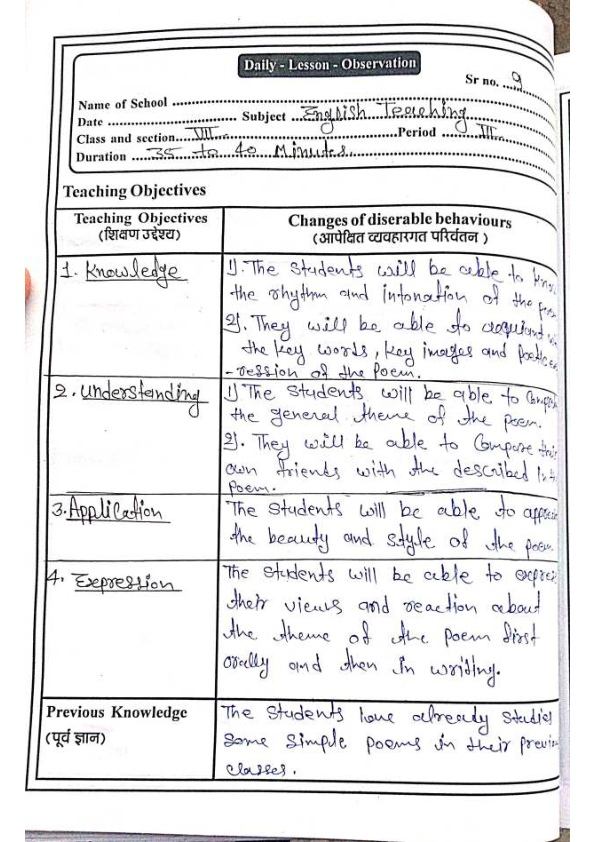 Daily - Lesson - Observation
Sr no. 9
Name of School
Date Subject English Teaching
Class and section VIII Period III
Duration 35 to 40 Minutes.
Teaching Objectives
Teaching Objectives
(शिक्षण उद्देश्य)
Changes of diserable behaviours
(आपेक्षित व्यवहारगत परिवंतन )
1. Knowledge
1). The Students will be able to know
the rhythm and intonation of the
2). They will be able to acquiant
the key words, key images and poetic
-ression of the Poem.
2. Understanding
1) The Students will be able to
the general theme of the poem.
2). They will be able to Compare their
own friends with the described in the
Poem.
3. Application
The Students will be able to
the beauty and style of the poem
4. Expression
The Students will be able to
their views and reaction about
the theme of the poem first
orally and then in writing.
Previous Knowledge
(पूर्व ज्ञान)
The Students have already studies
Some Simple poems in their
classes.